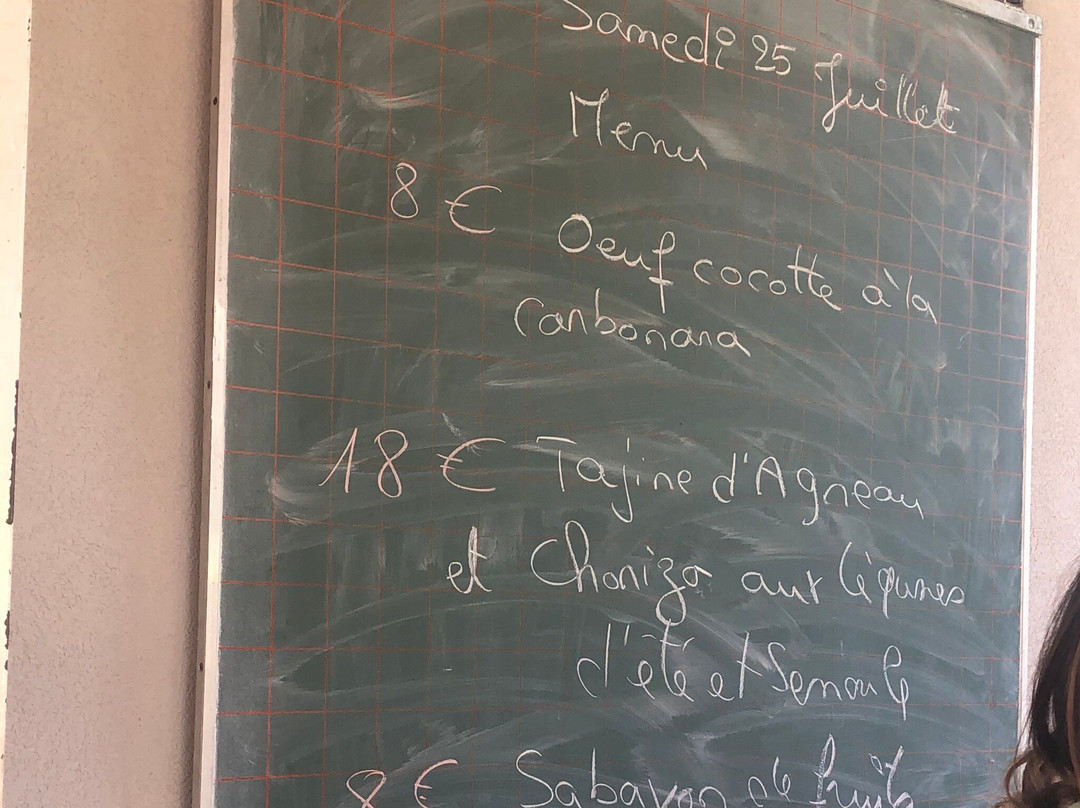 Samedi 25 Juillet
Menu
8 € Oeuf cocotte à la
Carbonara
18 € Tajine d'Agneau
et Chorizo aux légumes
d'été et Semoule
8 € Sabayon de fruits